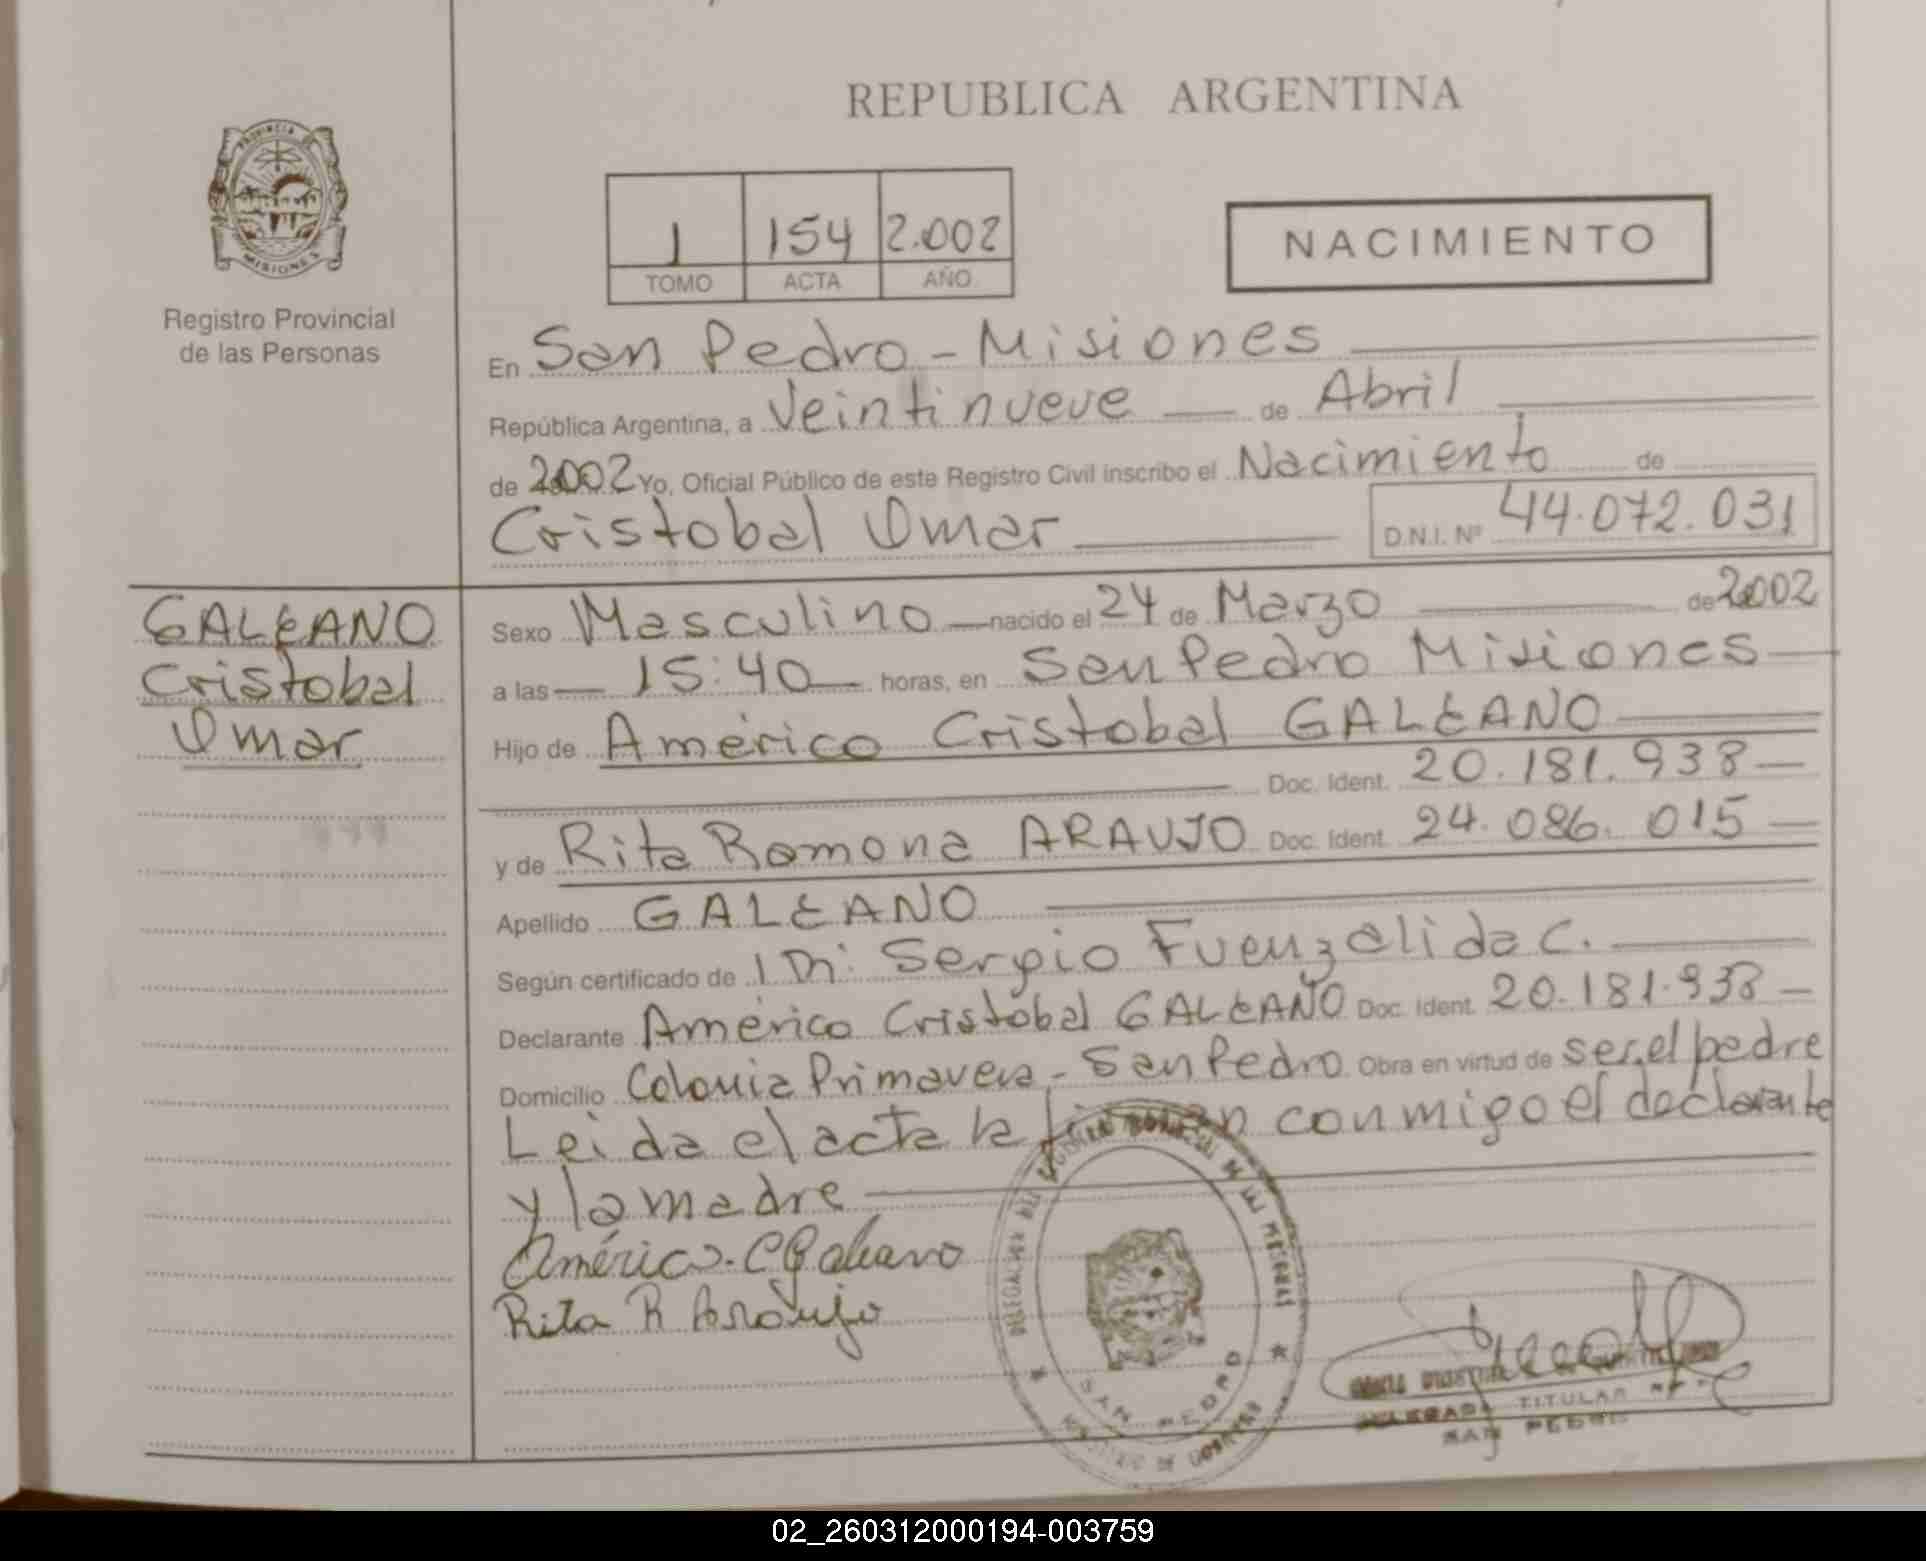 REPUBLICA ARGENTINA
PROVINCIA DE
MISIONES
Registro Provincial
de las Personas
1 154 2.002
TOMO ACTA AÑO
NACIMIENTO
En San Pedro - Misiones
República Argentina, a Veintinueve de Abril
de 2.002 Yo, Oficial Público de este Registro Civil inscribo el Nacimiento de
Cristobal Omar D.N.I. Nº 44.072.031
GALEANO
Cristobal
Omar
Sexo Masculino nacido el 24 de Marzo de 2.002
a las 15:40 horas, en San Pedro Misiones
Hijo de Américo Cristobal GALEANO
Doc. Ident. 20.181.938
y de Rita Ramona ARAUJO Doc. Ident. 24.086.015
Apellido GALEANO
Según certificado de Sergio Fuenzalida C.
Declarante Américo Cristobal GALEANO Doc. Ident. 20.181.938
Domicilio Colonia Primavera - San Pedro Obra en virtud de ser el padre
Leida el acta la firman conmigo el declarante
y la madre
Américo. C Galeano
Rita R Araujo
SAN PEDRO
TITULAR
SAN PEDRO
02_260312000194-003759